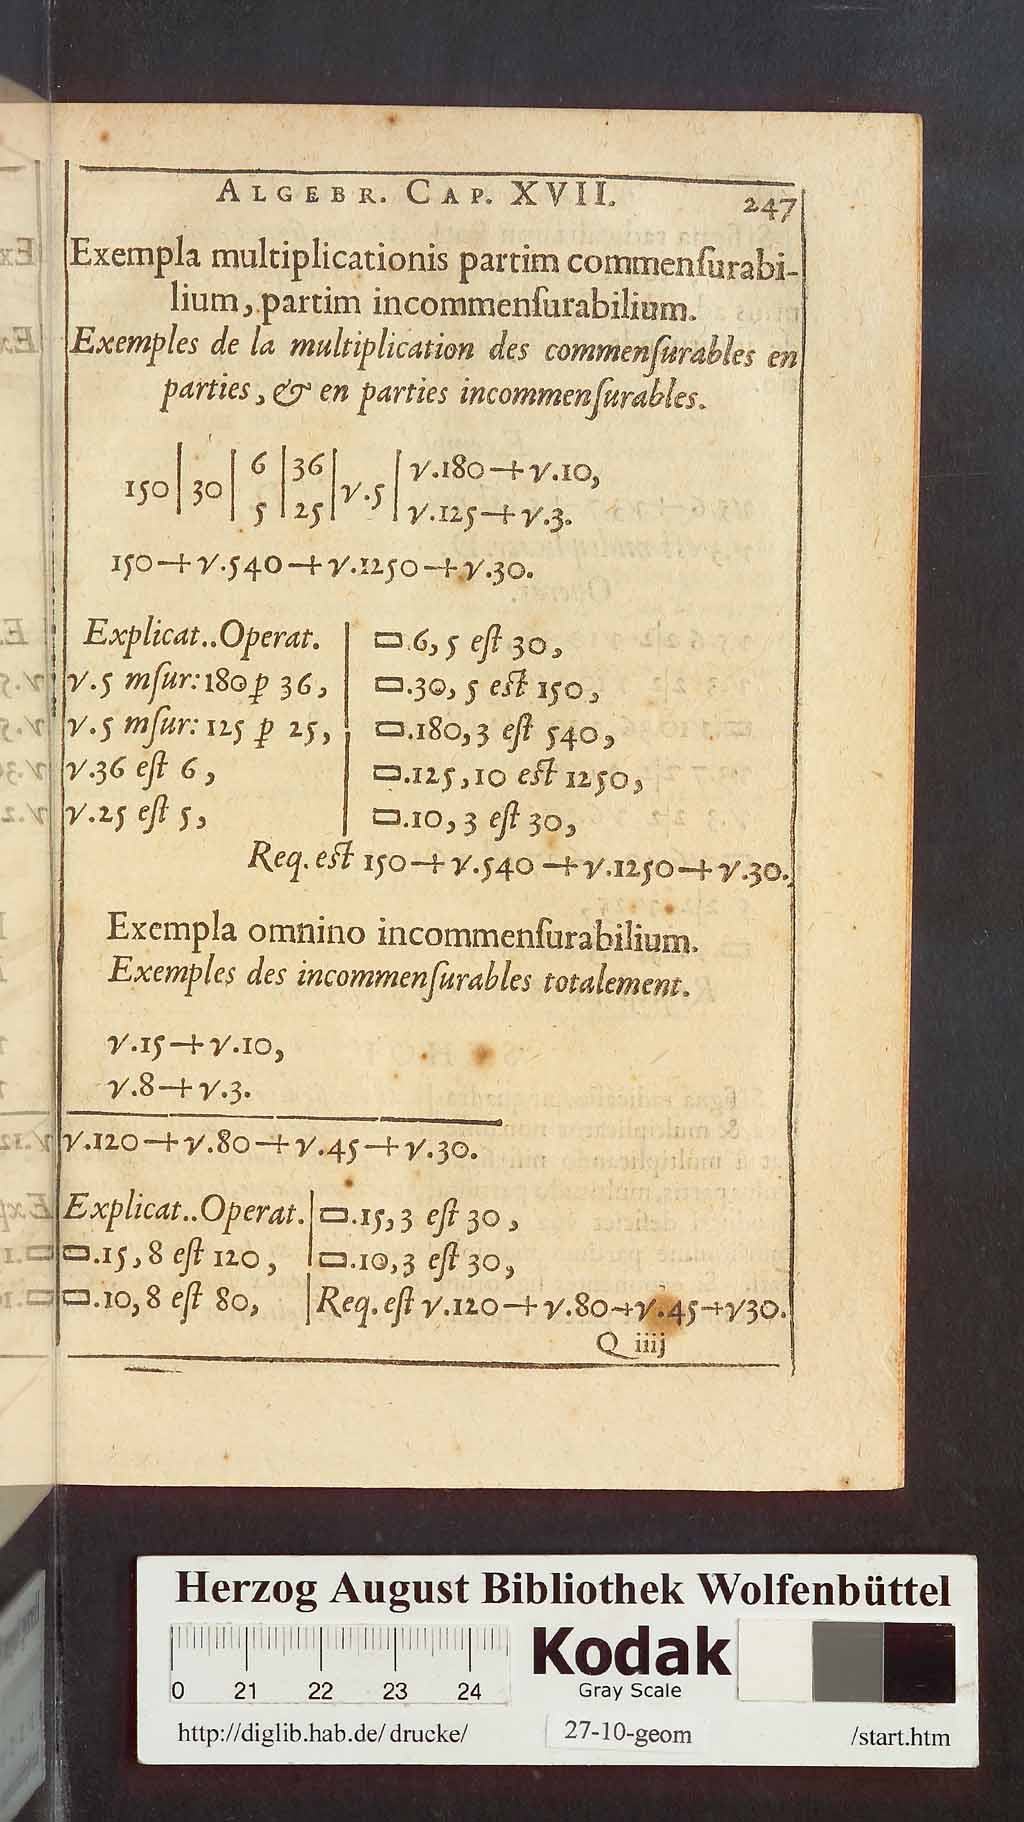 ALGEBR. CAP. XVII. 247
Exempla multiplicationis partim commenſurabi-
lium, partim incommenſurabilium.
Exemples de la multiplication des commenſurables en
parties, & en parties incommenſurables.
150 | 30 | 6 | 36 | √.5 | √.180+√.10,
5 | 25 | √.125+√.3.
150+√.540+√.1250+√.30.
Explicat..Operat.
√.5 mſur: 180 ꝑ 36,
√.5 mſur: 125 ꝑ 25,
√.36 eſt 6,
√.25 eſt 5,
▭.6, 5 eſt 30,
▭.30, 5 eſt 150,
▭.180, 3 eſt 540,
▭.125, 10 eſt 1250,
▭.10, 3 eſt 30,
Req. eſt 150+√.540+√.1250+√.30.
Exempla omnino incommenſurabilium.
Exemples des incommenſurables totalement.
√.15+√.10,
√.8+√.3.
√.120+√.80+√.45+√.30.
Explicat..Operat.
▭.15, 8 eſt 120,
▭.10, 8 eſt 80,
▭.15, 3 eſt 30,
▭.10, 3 eſt 30,
Req. eſt √.120+√.80+√.45+√30.
Q iiij
Herzog August Bibliothek Wolfenbüttel
0 21 22 23 24
Kodak
Gray Scale
http://diglib.hab.de/drucke/ 27-10-geom /start.htm